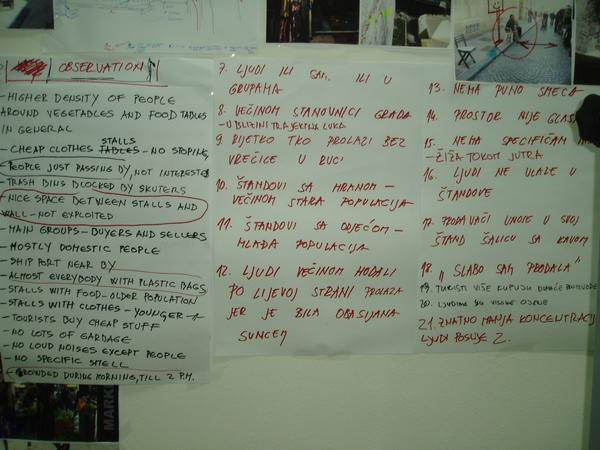 OBSERVATION
- HIGHER DENSITY OF PEOPLE
AROUND VEGETABLES AND FOOD TABLES
IN GENERAL
STALLS
- CHEAP CLOTHES TABLES - NO STOPING,
PEOPLE JUST PASSING BY, NOT INTERESTED
- TRASH BINS BLOCKED BY SKUTERS
- NICE SPACE BETWEEN STALLS AND
WALL - NOT EXPLOITED
- MAIN GROUPS - BUYERS AND SELLERS
- MOSTLY DOMESTIC PEOPLE
- SHIP PORT NEAR BY
- ALMOST EVERYBODY WITH PLASTIC BAGS
- STALLS WITH FOOD - OLDER POPULATION
- STALLS WITH CLOTHES - YOUNGER -
- TOURISTS BUY CHEAP STUFF
- NO LOTS OF GARBAGE
- NO LOUD NOISES EXCEPT PEOPLE
- NO SPECIFIC SMELL
- CROWDED DURING MORNING, TILL 2 P.M.
MARK
7. LJUDI ILI SAMI ILI U
GRUPAMA
8. VEĆINOM STANOVNICI GRADA
- U BLIZINI TRAJEKTNA LUKA
9. RIJETKO TKO PROLAZI BEZ
VREĆICE U RUCI
10. ŠTANDOVI SA HRANOM -
VEĆINOM STARA POPULACIJA
11. ŠTANDOVI SA ODJEĆOM -
MLAĐA POPULACIJA
12. LJUDI VEĆINOM HODALI
PO LIJEVOJ STRANI PROLAZA
JER JE BILA OBASJANA
SUNCEM
13. NEMA PUNO SMEĆA
14. PROSTOR NIJE GLAS
15. NEMA SPECIFIČAN
- ŽIŽA TOKOM JUTRA
16. LJUDI NE ULAZE U
ŠTANDOVE
17. PRODAVAČI UNOSE U SVOJ
ŠTAND ŠALICU SA KAVOM
18. "SLABO SAM PRODALA"
19. TURISTI VIŠE KUPUJU DOMAĆE PROIZVODE
20. LJUDIMA SU VISOKE CIJENE
21. ZNATNO MANJA KONCENTRACIJ
LJUDI POSLIJE 2.